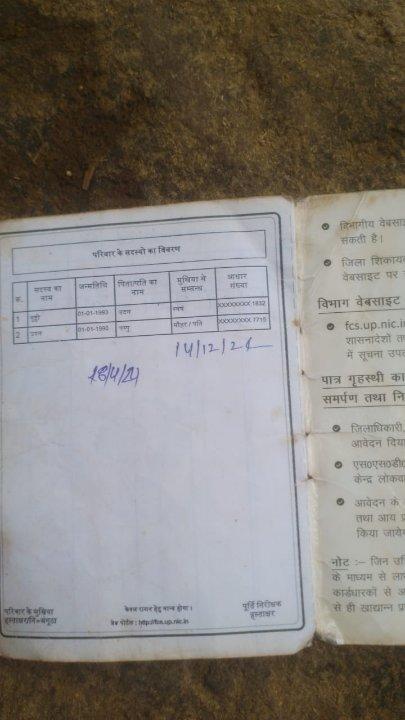 परिवार के सदस्यो का विवरण
क. सदस्य का नाम जन्मतिथि पिता/पति का नाम मुखिया से सम्बन्ध आधार संख्या
1 01-01-1993 मदन स्वयं XXXXXXXX 1832
2 01-01-1990 पप्पू शौहर / पति XXXXXXXX 1715
14/12/2
18/4/21
परिवार के मुखिया
हस्ताक्षर/नि०अंगूठा
केवल राशन हेतु मान्य होगा।
वेब पोर्टल : http://fcs.up.nic.in
पूर्ति निरीक्षक
हस्ताक्षर
विभागीय वेबसाइ
सकती है।
जिला शिकाय
वेबसाइट पर
विभाग वेबसाइट
fcs.up.nic.in
शासनादेशों त
में सूचना उपल
पात्र गृहस्थी का
समर्पण तथा नि
जिलाधिकारी,
आवेदन दिया
एस०एस०डी०
केन्द्र लोकवा
आवेदन के
तथा आय प्र
किया जाये
नोट :– जिन उचि
के माध्यम से ला
कार्डधारकों से अ
से ही खाद्यान्न प्र